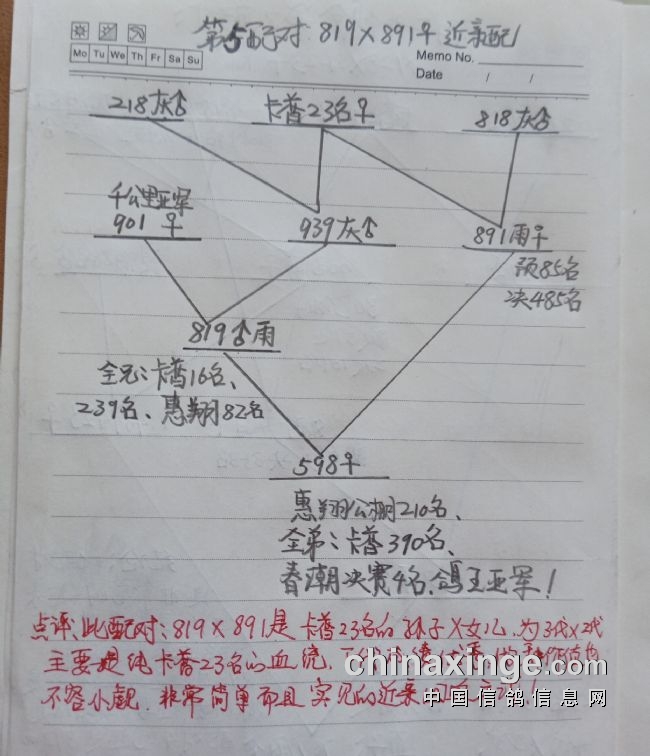 第5配对: 819×891♀近亲配
Mo Tu We Th Fr Sa Su
Memo No.
Date / /
218灰♂ 卡普23名♀ 818灰♂
千公里亚军
901 ♀ 939灰♂ 891雨♀
预85名
决485名
819♂雨
全兄:卡普16名、
239名、惠翔82名
598♀
惠翔公棚210名、
全弟:卡普390名、
春潮决赛4名、鸽王亚军!
点评、此配对:819×891是卡普23名的孙子×女儿、为3代×2代
主要是纯卡普23名的血统、
不容小觑、非常简单而且实见的近亲
chinaxinge.com
中国信鸽信息网